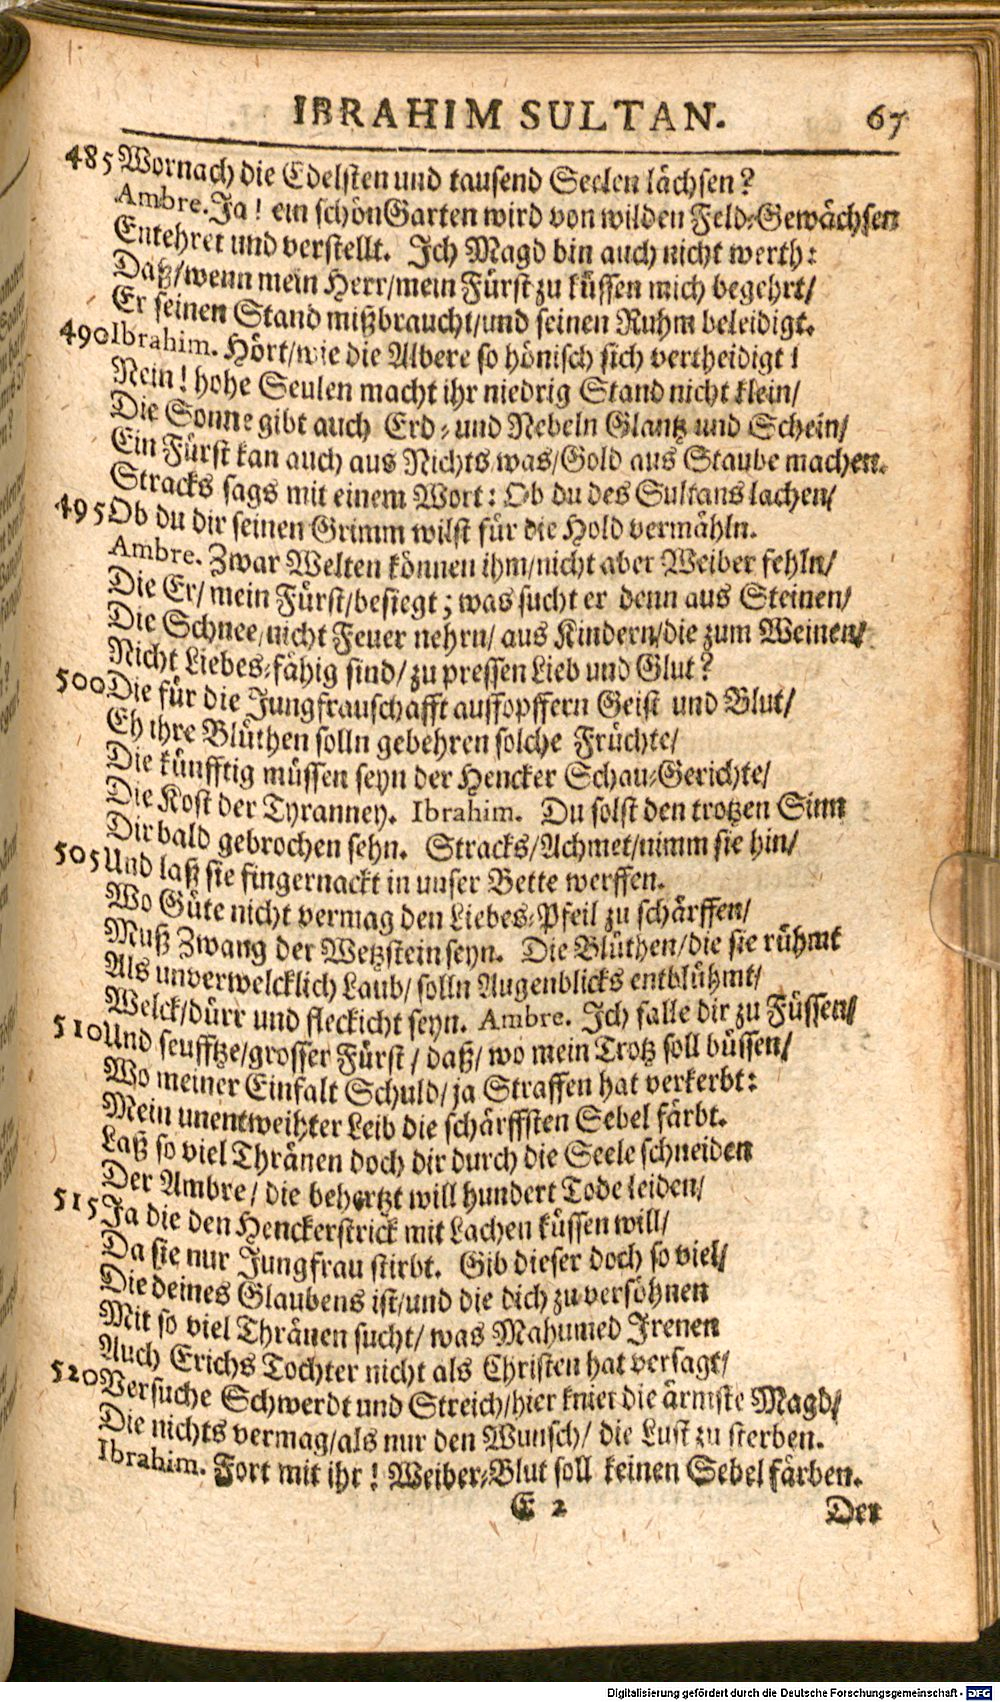 IBRAHIM SULTAN. 67
485 Wornach die Edelsten und tausend Seelen lächsen?
Ambre. Ja! ein schön Garten wird von wilden Feld-Gewächsen
Entehret und verstellt. Ich Magd bin auch nicht werth:
Daß/wenn mein Herr/mein Fürst zu küssen mich begehrt/
Er seinen Stand mißbraucht/und seinen Ruhm beleidigt.
490 Ibrahim. Hört/wie die Albere so hönisch sich vertheidigt!
Nein! hohe Seulen macht ihr niedrig Stand nicht klein/
Die Sonne gibt auch Erd- und Nebeln Glantz und Schein/
Ein Fürst kan auch aus Nichts was/Gold aus Staube machen.
Stracks sags mit einem Wort: Ob du des Sultans lachen/
495 Ob du dir seinen Grimm wilst für die Hold vermähln.
Ambre. Zwar Welten können ihm/nicht aber Weiber fehln/
Die Er/ mein Fürst/besiegt; was sucht er denn aus Steinen/
Die Schnee/nicht Feuer nehrn/ aus Kindern/die zum Weinen/
Nicht Liebes-fähig sind/ zu pressen Lieb und Glut?
500 Die für die Jungfrauschafft auffopffern Geist und Blut/
Eh ihre Blüthen solln gebehren solche Früchte/
Die künfftig müssen seyn der Hencker Schau-Gerichte/
Die Kost der Tyranney. Ibrahim. Du solst den trotzen Sinn
Dir bald gebrochen sehn. Stracks/Achmet/nimm sie hin/
505 Und laß sie fingernackt in unser Bette werffen.
Wo Güte nicht vermag den Liebes-Pfeil zu schärffen/
Muß Zwang der Wetzstein seyn. Die Blüthen/die sie rühmt
Als unverwelcklich Laub/ solln Augenblicks entblühmt/
Welck/dürr und fleckicht seyn. Ambre. Ich falle dir zu Füssen/
510 Und seufftze/grosser Fürst/ daß/ wo mein Trotz soll büssen/
Wo meiner Einfalt Schuld/ja Straffen hat verkerbt:
Mein unentweihter Leib die schärffsten Sebel färbt.
Laß so viel Thränen doch dir durch die Seele schneiden
Der Ambre/ die behertzt will hundert Tode leiden/
515 Ja die den Henckerstrick mit Lachen küssen will/
Da sie nur Jungfrau stirbt. Gib dieser doch so viel/
Die deines Glaubens ist/und die dich zu versöhnen
Mit so viel Thränen sucht/ was Mahumed Irenen
Auch Erichs Tochter nicht als Christen hat versagt/
520 Versuche Schwerdt und Streich/hier kniet die ärmste Magd/
Die nichts vermag/als nur den Wunsch/ die Lust zu sterben.
Ibrahim. Fort mit ihr! Weiber-Blut soll keinen Sebel färben.
E 2 Der
Digitalisierung gefördert durch die Deutsche Forschungsgemeinschaft - DFG